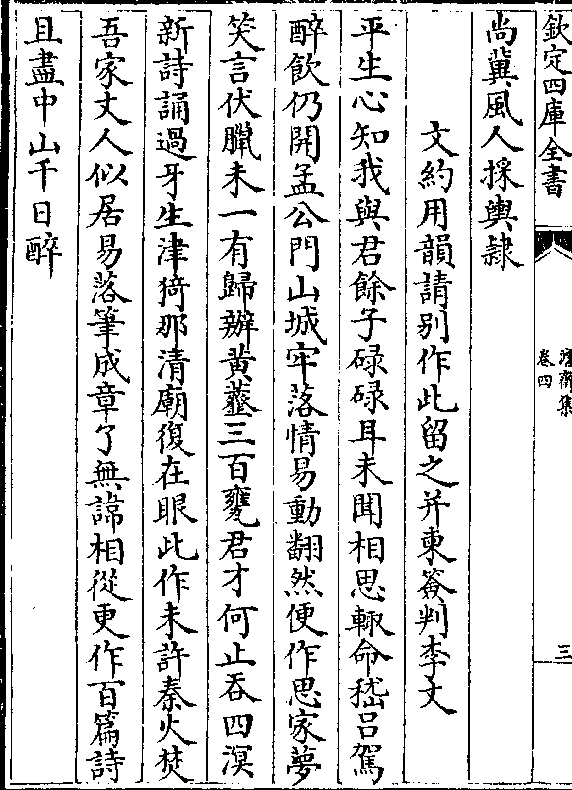 欽定四庫全書
卷四
三
尚冀風人採輿隷
文約用韻請别作此留之并柬簽判李丈
平生心知我與君餘子碌碌耳未聞相思輙命嵇吕駕
醉飲仍開孟公門山城牢落情易動翻然便作思家夢
笑言伏臘未一有歸辦黄虀三百甕君才何止吞四溟
新詩誦過牙生津猗那清廟復在眼此作未許秦火焚
吾家丈人似居易落筆成章了無諱相從更作百篇詩
且盡中山千日醉